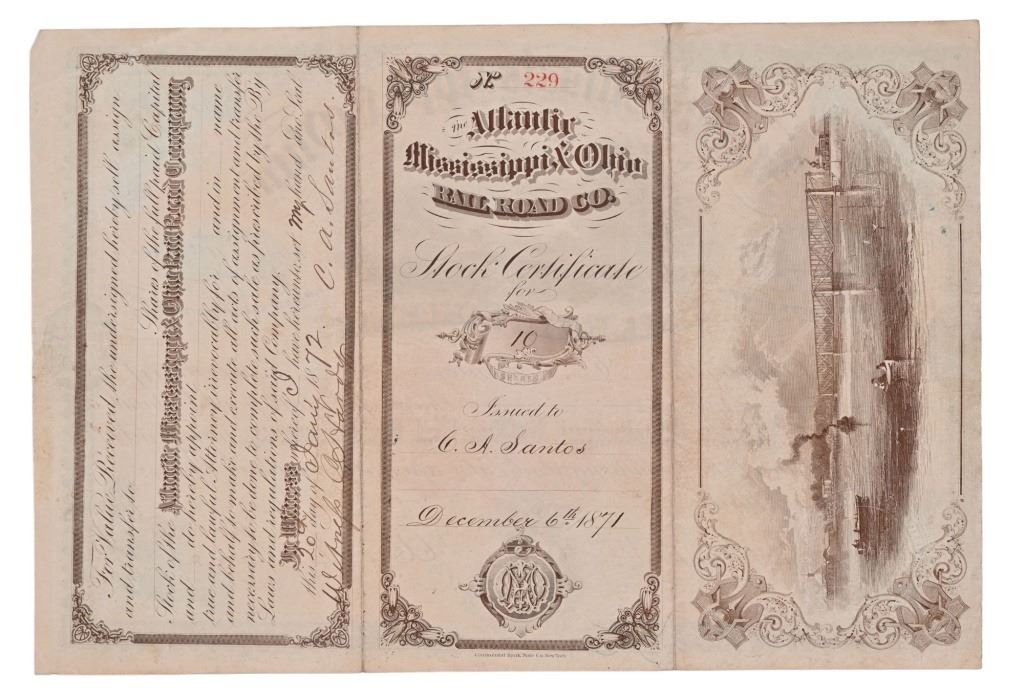 For Value Received, the undersigned hereby sell assign
and transfer to
Shares of the full paid Capital
Stock of the Atlantic Mississippi & Ohio Rail Road Company
and do hereby appoint
true and lawful Attorney irrevocably for and in name
and behalf to make and execute all acts of assignment and transfer
necessary to be done to complete such sale as provided by the By
Laws and regulations of said Company.
In Witness whereof I have hereunto set my hand and Seal
this 20 day of Jany 1872. C. A. Santos.
No 229
The Atlantic
Mississippi & Ohio
RAIL ROAD CO.
Stock Certificate
for
10
SHARES
Issued to
C. A. Santos
December 6th 1871
AM&O
Continental Bank Note Co. New York